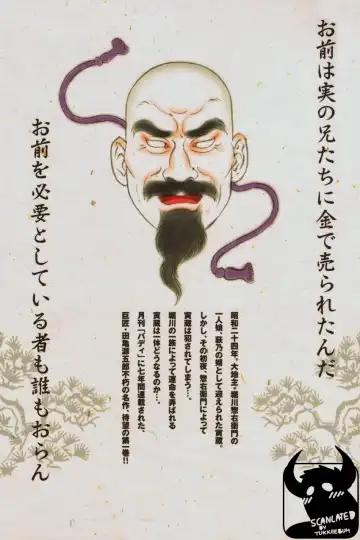 お前は実の兄たちに金で売られたんだ
お前を必要としている者も誰もおらん
昭和二十四年、大地主・堀川惣右衛門の
一人娘、萩乃の婿として迎えられた寅蔵。
しかし、その初夜、惣右衛門によって
寅蔵は犯されてしまう…。
堀川の一族によって運命を弄ばれる
寅蔵は一体どうなるのか…。
月刊「バディ」に七年間連載された、
巨匠・田亀源五郎不朽の名作、待望の第一巻!!
SCANLATED
BY
TUKKEEBUM